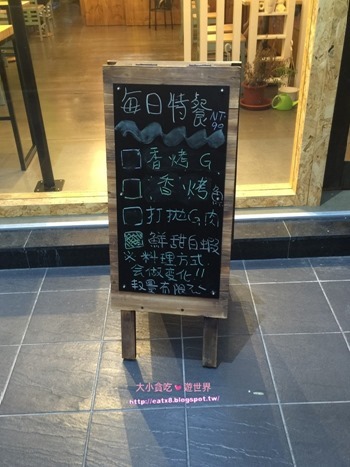 每日特餐 NT.90
香烤G.
香烤魚
打拋G.肉
鮮甜白蝦
※料理方式
會做变化!!
數量有限ㄛ~
大小貪吃 ♥ 遊世界
http://eatx8.blogspot.tw/